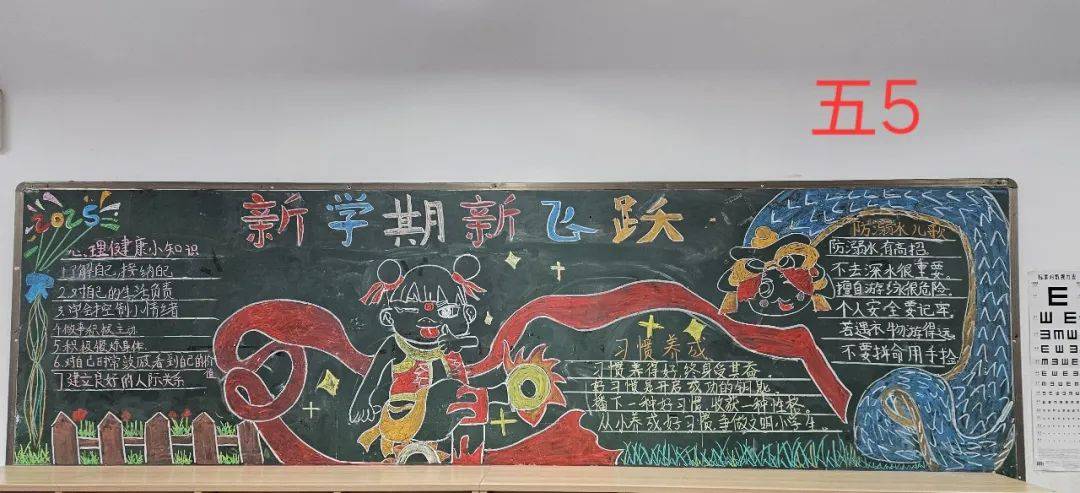 五5
2025
新学期新飞跃
心理健康小知识
1了解自己,接纳自己
2对自己的生活负责
3学会控制小情绪
4做事积极主动
5积极锻炼身体
6对自己时常鼓励看到自己的价值
7建立良好的人际关系
习惯养成
习惯养得好,终身受其益
好习惯是开启成功的钥匙
播下一种好习惯,收获一种性格
从小养成好习惯争做文明小学生。
防溺水儿歌
防溺水有高招
不去深水很重要
擅自游泳很危险
个人安全要记牢
若遇不物游得远
不要拼命用手捡
E